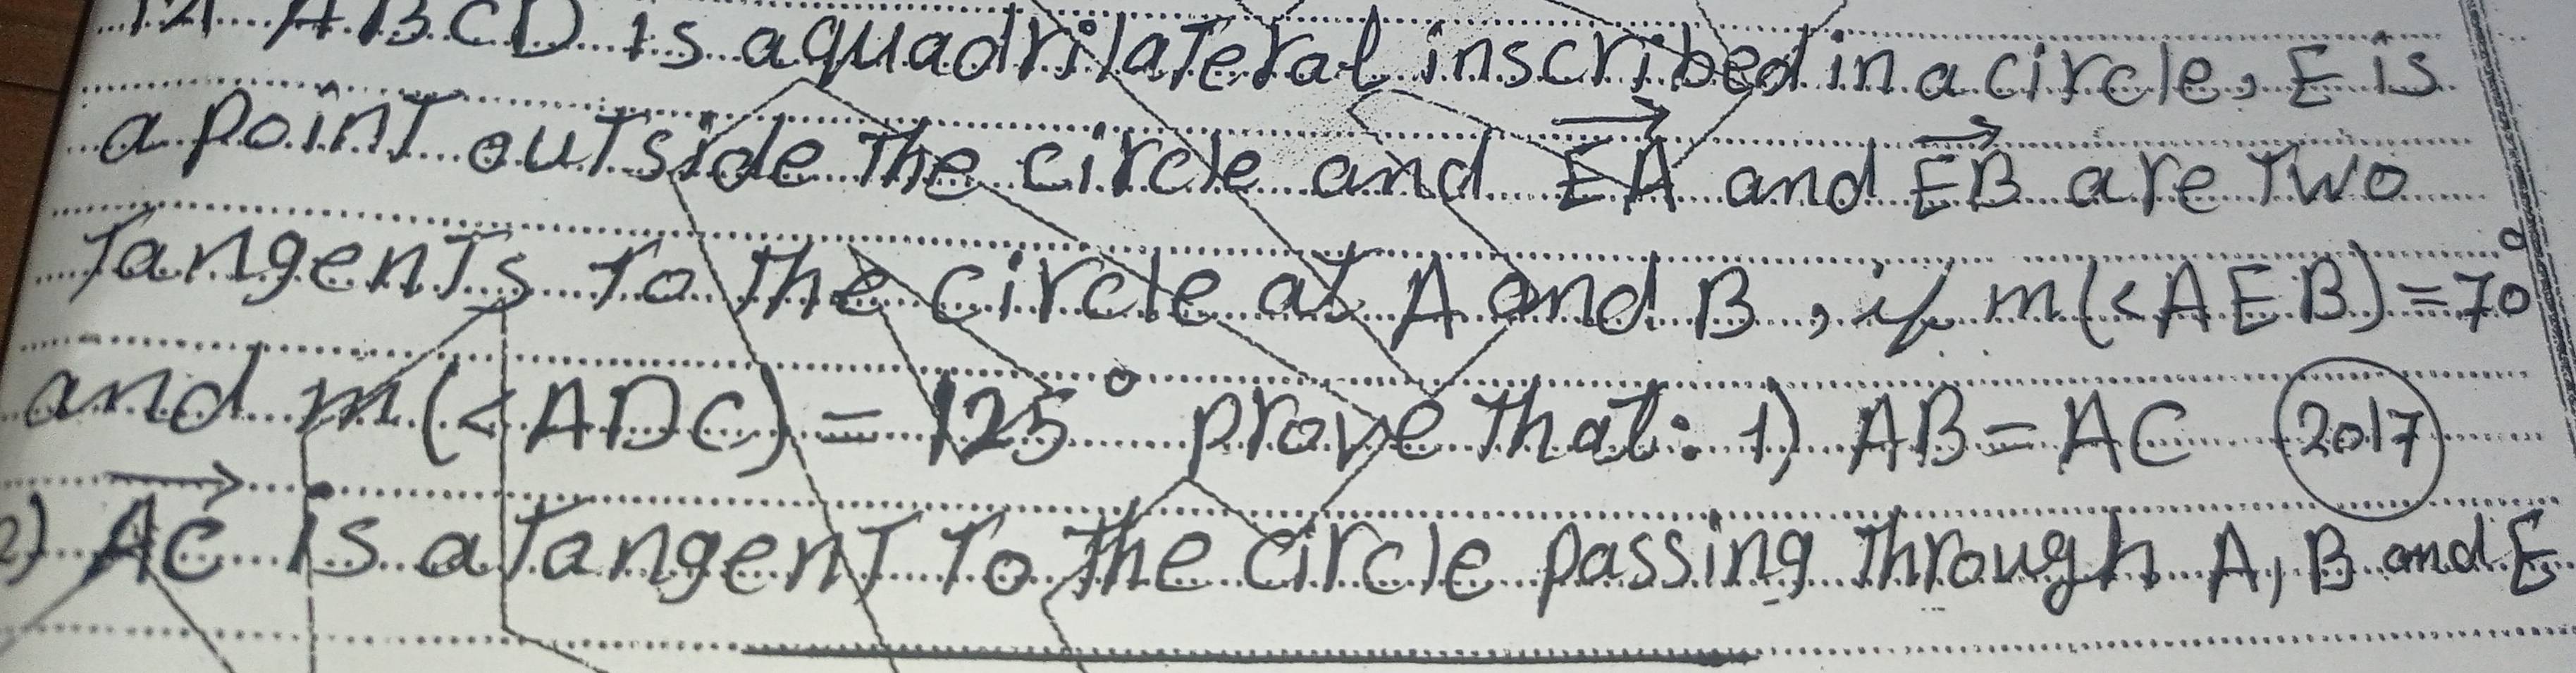 ABCD is a quadrilateral inscribed in a circle, E is
a point outside the circle and EA and EB are two
Tangents to the circle at A and B, if m(<AEB)=70°
and m(<ADC)=125° prove that: 1) AB=AC 2017
2) AC is a tangent to the circle passing through A, B and E